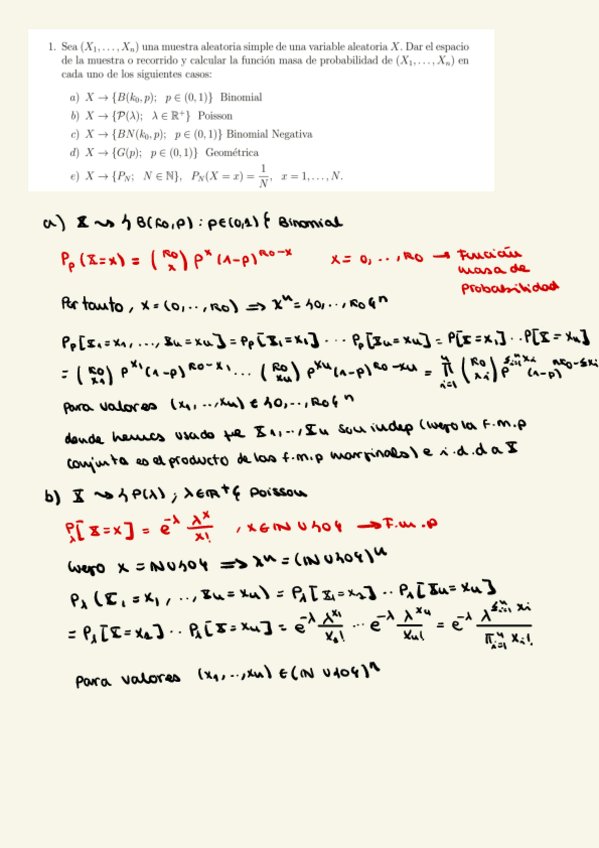 1. Sea (X₁, . . . , Xₙ) una muestra aleatoria simple de una variable aleatoria X. Dar el espacio
de la muestra o recorrido y calcular la función masa de probabilidad de (X₁, . . . , Xₙ) en
cada uno de los siguientes casos:
a) X → {B(k₀, p); p ∈ (0, 1)} Binomial
b) X → {P(λ); λ ∈ ℝ⁺} Poisson
c) X → {BN(k₀, p); p ∈ (0, 1)} Binomial Negativa
d) X → {G(p); p ∈ (0, 1)} Geométrica
e) X → {P_N; N ∈ ℕ}, P_N(X = x) = 1/N, x = 1, . . . , N.
a) X ⇝ {B(k₀,p) : p∈(0,1)} Binomial
Pₚ(X=x) = (k₀ x) pˣ (1-p)^(k₀-x) x = 0, .., k₀ → Función
masa de
probabilidad
Por tanto, X = {0, .., k₀} ⇒ Xⁿ = {0, .., k₀}ⁿ
Pₚ[X₁=x₁, ..., Xₙ=xₙ] = Pₚ[X₁=x₁] ... Pₚ[Xₙ=xₙ] = P[X=x₁] .. P[X=xₙ]
= (k₀ x₁) p^x₁ (1-p)^(k₀-x₁) ... (k₀ xₙ) p^xₙ (1-p)^(k₀-xₙ) = ∏ⁿᵢ₌₁ (k₀ xᵢ) p^(Σⁿᵢ₌₁ xᵢ) (1-p)^(nk₀-Σxᵢ)
Para valores (x₁, .., xₙ) ∈ {0, .., k₀}ⁿ
donde hemos usado que X₁, .., Xₙ son indep (luego la f.m.p
conjunta es el producto de las f.m.p marginales) e i.d.d a X
b) X ⇝ {P(λ) ; λ∈ℝ⁺} Poisson
P_λ[X=x] = e^-λ λˣ/x! , x∈ℕ∪{0} → F.m.p
luego X = ℕ∪{0} ⇒ Xⁿ = (ℕ∪{0})ⁿ
P_λ(X₁=x₁, .., Xₙ=xₙ) = P_λ[X₁=x₁] .. P_λ[Xₙ=xₙ]
= P_λ[X=x₁] .. P_λ[X=xₙ] = e^-λ λ^x₁/x₁! ... e^-λ λ^xₙ/xₙ! = e^-λ λ^(Σⁿᵢ₌₁ xᵢ)/∏ⁿᵢ₌₁ xᵢ!
Para valores (x₁, .., xₙ) ∈ (ℕ∪{0})ⁿ